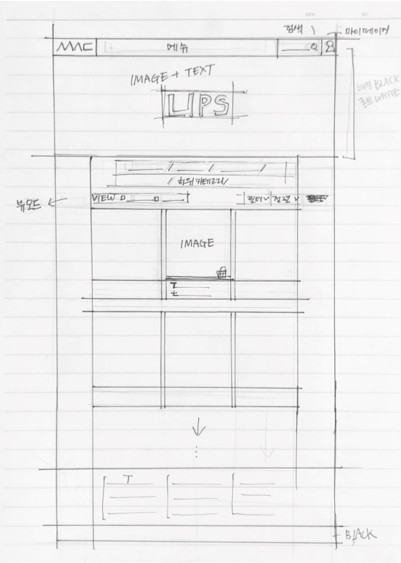 검색
마이페이지
MAC
메뉴
IMAGE + TEXT
LIPS
BLACK
WHITE
/ 하위 카테고리
뷰모드
VIEW
필터 ∨ 정렬 ∨
IMAGE
T
T
BLACK